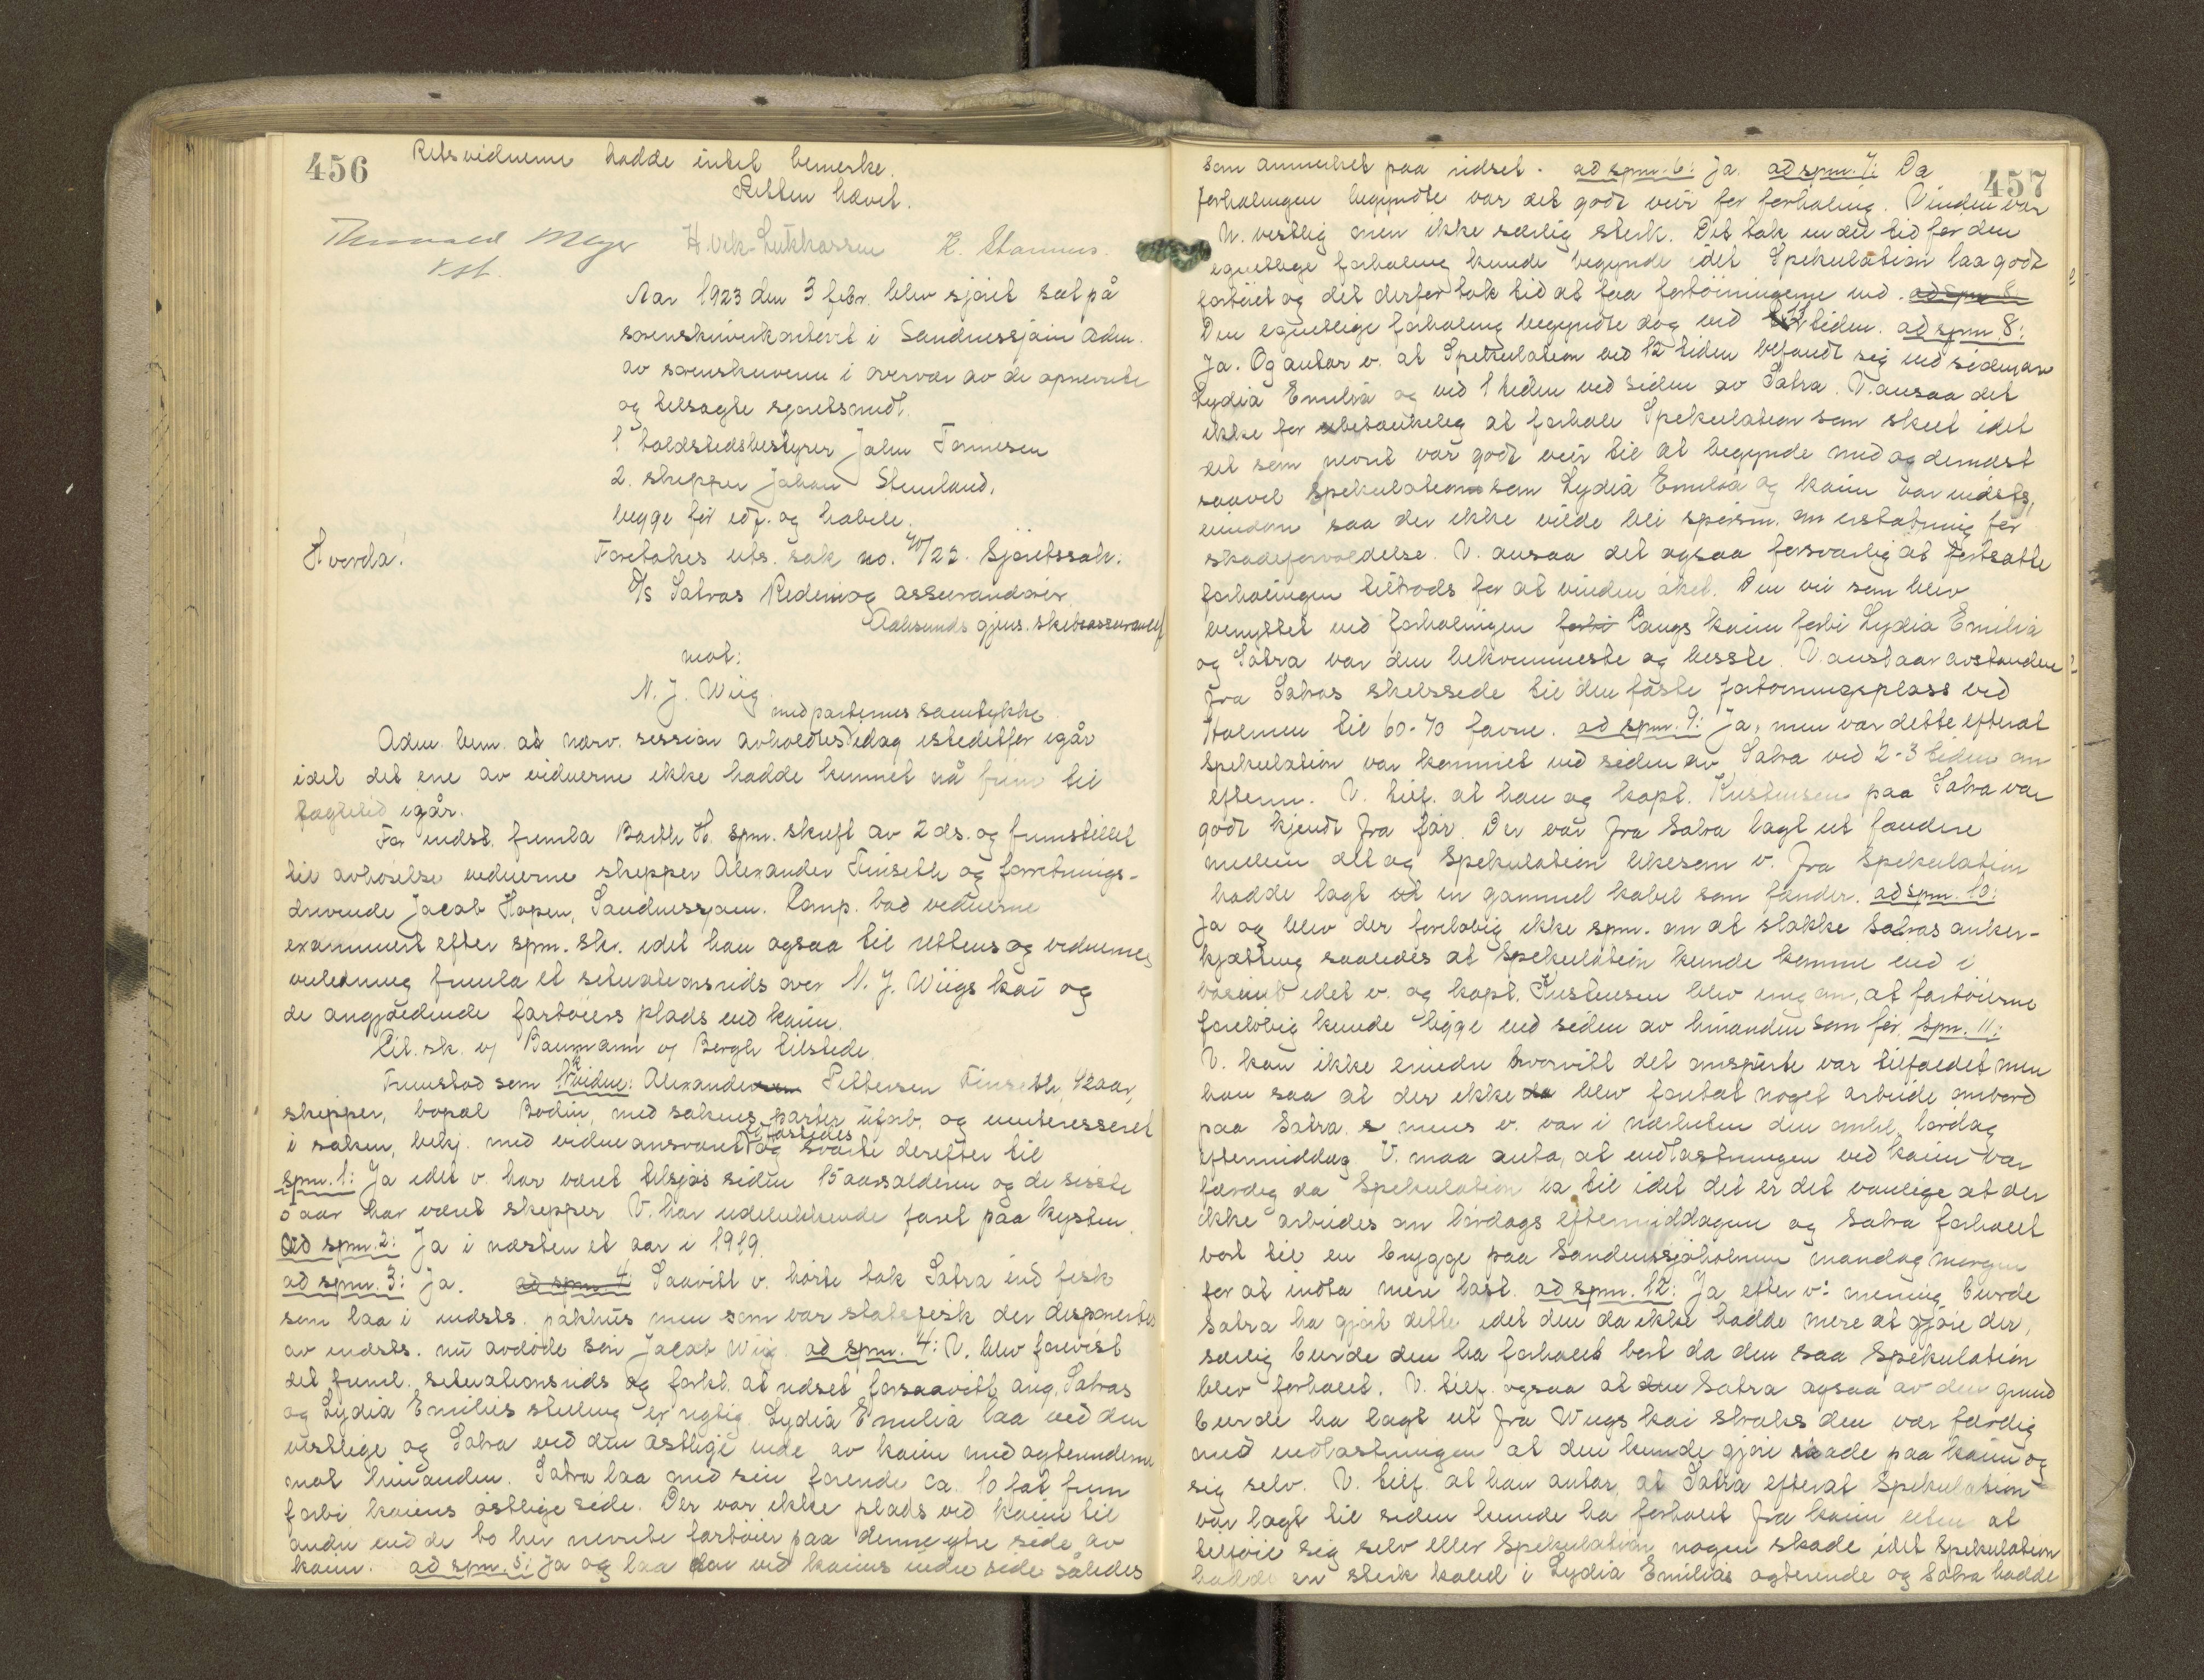 456
Retsvidnerne hadde intet bemerke.
Retten hævet.
Thorvald Meyer H. Vik-Lukkassen K. Stamnes.
kst.
Aar 1923 den 3 febr. blev sjøret sat på
sorenskriverkontoret i Sandnessjøen adm.
av sorenskriveren i overvær av de opnevnte
og tilsagte sjøretsmedl.
1 toldstedsbestyrer John Tønnesen
2. skipper Johan Stenland,
begge før edf. og habile.
Hvorda!
Foretokes uts. sak no. 40/22. Sjøretssak:
D/s Satras Rederi og assurandør
Aalesunds gjens. skibsassuranse
mot:
N. J. Wiig.
med parternes samtykke
Adm. bem. at nærv. session avholdtes idag istedetfor igår
idet det ene av vidnerne ikke hadde kunnet nå frem til
tægtetid igår.
For indst. fremla Barth H. spm. skrift av 2 ds. og fremstillet
til avhørelse vidnerne skipper Alexander Finseth og forretnings-
drivende Jacob Hopen, Sandnessjøen. Komp. bad vidnerne
examinert efter spm. skr. idet han ogsaa til rettens og vidnernes
veiledning fremla et situationsrids over N. J. Wiigs kai og
de angjældende fartøiers plads ved kaien.
Cit. sk. v/ Baumann v/ Bergh tilstede.
Fremstod som 1ste vidne: Alexander Pettersen Finseth, 42 aar,
skipper, bopæl Bodin, med sakens parter uforb. og uinteresseret
i saken, bekj. med vidneansvaret edfæstedes og svarte derefter til
spm. 1: Ja idet v. har været tilsjøs siden 15 aarsalderen og de sisste
5 aar har været skipper. V. har udelukkende faret paa kysten.
ad spm. 2: Ja i næsten et aar i 1919.
ad spm. 3: Ja. ad spm. 4 Saavitt v. hørte tok Satra ind fisk
som laa i indsts. pakhus men som var statsfisk der disponertes
av indsts. nu avdøde søn Jacob Wiig. ad spm. 4: V. blev forevist
det freml. situationsrids og forkl. at ridset forsaavitt ang. Satras
og Lydia Emilies stilling er rigtig. Lydia Emilia laa ved den
vestlige og Satra ved den østlige ende av kaien med agterenderne
mot hinanden. Satra laa med sin forende ca. 10 fot frem
forbi kaiens østlige side. Der var ikke plads ved kaien til
andre end de to her nevnte fartøier paa denne ytre side av
kaien. ad spm. 5: Ja og laa den ved kaiens indre side således
457
som anmerket paa ridset. ad spm. 6: Ja. ad spm. 7: Da
forhalingen begyndte var det godt veir for forhaling. Vinden var
N. vestlig men ikke særlig sterk. Det tok en del tid før den
egentlige forhaling kunde begynde idet Spekulation laa godt
fortøiet og det derfor tok tid at faa fortøiningerne ind. ad spm 8
Den egentlige forhaling begyndte dog ved 11 tiden. ad spm. 8:
Ja. Og antar v. at Spekulation ved 12 tiden befandt sig ved siden av
Lydia Emilia og ved 1 tiden ved siden av Satra. V. ansaa det
ikke for ubetænkelig at forhale Spekulation som skeet idet
det som nevnt var godt veir til at begynde med og dernæst
saavel Spekulation som Lydia Emilia og kaien var indsts.
eiendom saa der ikke vilde bli spørsm. om erstatning for
skadeforvoldelse. V. ansaa det ogsaa forsvarlig at fortsætte
forhalingen tiltrods for at vinden øket. Den vei som blev
benyttet ved forhalingen forbi langs kaien forbi Lydia Emilia
og Satra var den bekvemmeste og besste. V. anslaar avstanden
fra Satras skibsside til den faste fortøiningsplass ved
Holmen til 60-70 favne. ad spm. 9: Ja, men var dette efterat
Spekulation var kommet ved siden av Satra ved 2-3 tiden om
efterm. V. tilf. at han og kapt. Kristensen paa Satra var
godt kjendt fra før. Der var fra Satra lagt ut fendere
mellem det og Spekulation likesom v. fra Spekulation
hadde lagt ut en gammel kabel som fender. ad spm. 10:
Ja og blev der foreløbig ikke spm. om at slakke Satras anker-
kjætting saaledes at Spekulation kunde komme ind i
idet v. og kapt. Kristensen blev enig om, at fartøierne
foreløbig kunde ligge ved siden av hinanden som før. spm. 11:
V. kan ikke erindre hvorvitt det omspurte var tilfældet men
han saa at der ikke blev foretat noget arbeide ombord
paa Satra mens v. var i nærheten den omh. lørdag
eftermiddag. V. maa anta, at indlastningen ved kaien var
færdig da Spekulation la til idet det er det vanlige at der
ikke arbeides om lørdags eftermiddagen og Satra forhalet
bort til en brygge paa Sandnessjøholmen mandag morgen
for at indta mere last. ad spm. 12: Ja efter v: mening burde
Satra ha gjort dette idet den da ikke hadde mere at gjøre der,
særlig burde den ha forhalet bort da den saa Spekulation
blev forhalet. V. tilf. ogsaa at den Satra ogsaa av den grund
burde ha lagt ut fra Wiigs kai straks den var færdig
med indlastningen at den kunde gjøre skade paa kaien og
sig selv. V. tilf. at han antar, at Satra efterat Spekulation
var lagt til siden kunde ha forhalet fra kaien uten at
tilføie sig selv eller Spekulation nogen skade idet Spekulation
hadde en sterk kabel i Lydia Emilias agterende og Satra hadde